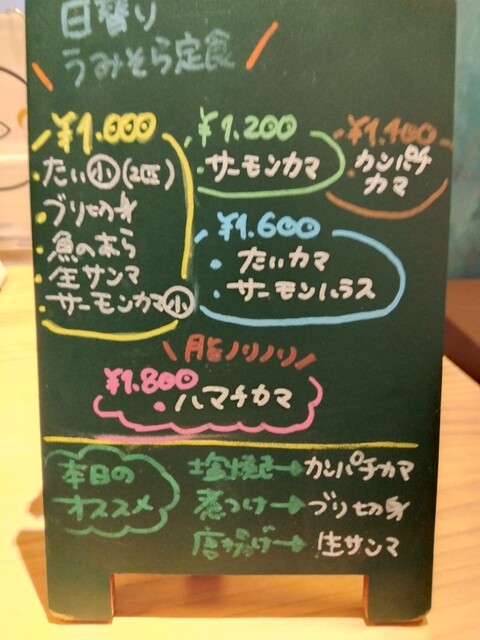 日替り
うみそら定食
¥1.000
たい小(2匹)
ブリ切身
魚のあら
生サンマ
サーモンカマ小
¥1.200
サーモンカマ
¥1.400
カンパチ
カマ
¥1.600
たいカマ
サーモンハラス
脂ノリノリ
¥1.800
ハマチカマ
本日の
オススメ
塩焼き→カンパチカマ
煮つけ→ブリ切身
唐あげ→生サンマ